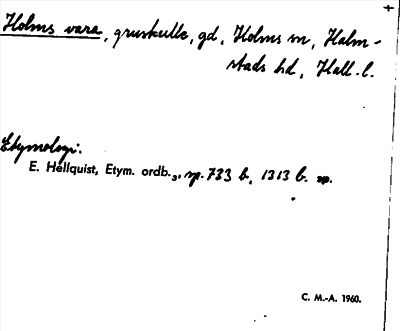 Holms vara, gruskulle, gd, Holms sn, Halm-
stads hd, Hall. l.
Etymologi:
E. Hellquist, Etym. ordb.3, sp. 733 b, 1313 b.
C. M.-A. 1960.